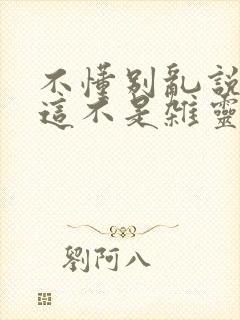 不懂别亂説
這不是雜靈
劉阿八